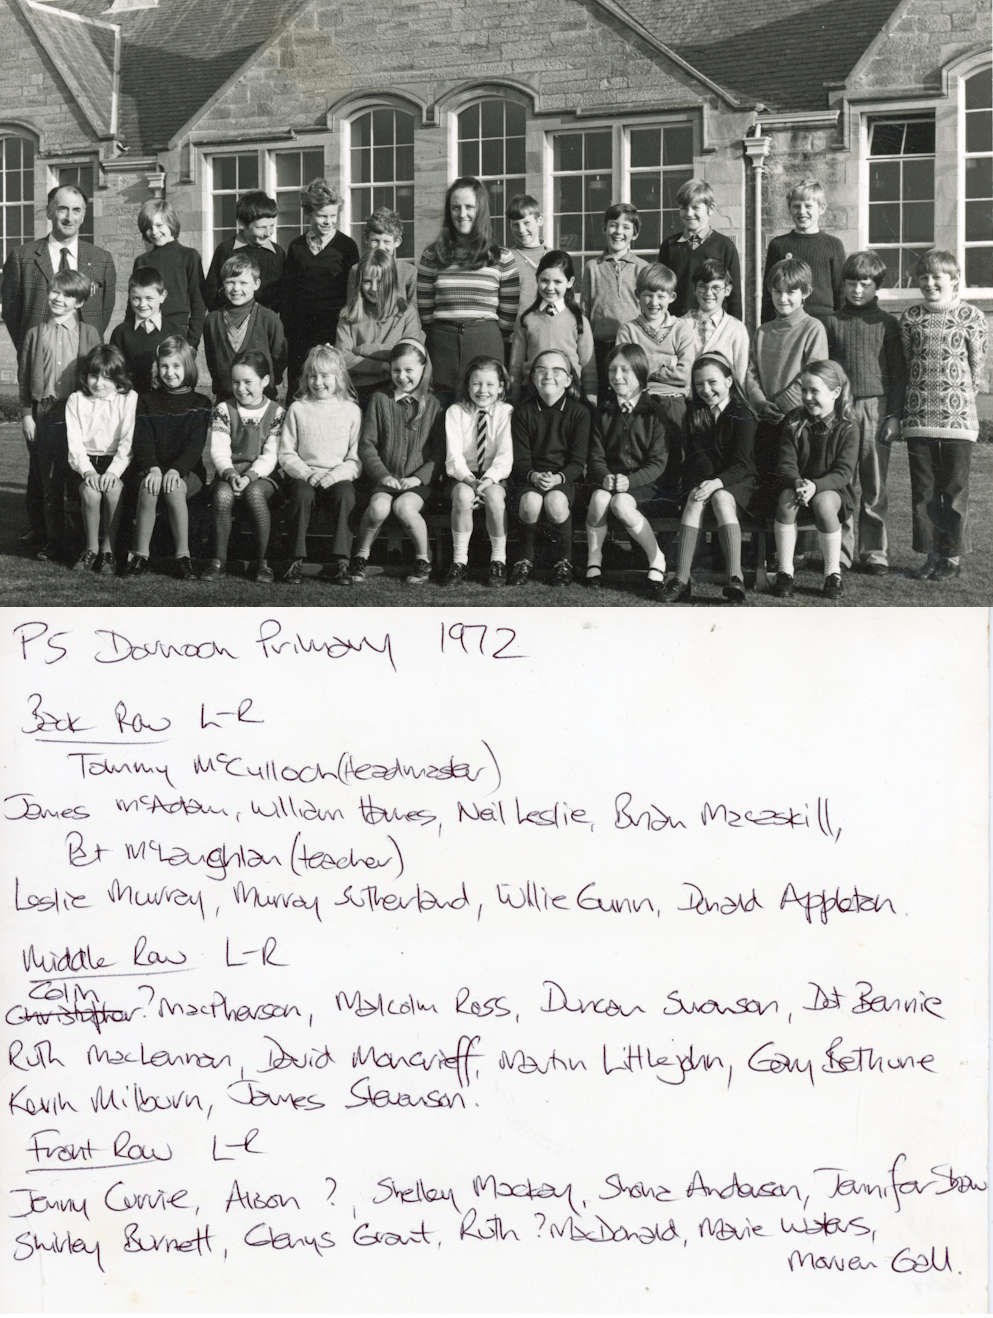 P5 Dornoch Primary 1972
Back Row L-R
Tommy McCulloch (Headmaster)
James McAdam, William Hames, Neil Leslie, Brian Macaskill,
Pat McLaughlan (teacher)
Leslie Murray, Murray Sutherland, Willie Gunn, Donald Appleton.
Middle Row L-R
Colin
Christopher? MacPherson, Malcolm Ross, Duncan Swanson, Dot Bennie
Ruth MacLennan, David Moncrieff, Martin Littlejohn, Gary Bethune
Kevin Milburn, James Stevenson.
Front Row L-R
Jenny Currie, Alison ?, Shelley Mackay, Shona Anderson, Jennifer Shaw
Shirley Burnett, Glenys Grant, Ruth ? MacDonald, Marie Waters,
Morven Gall.